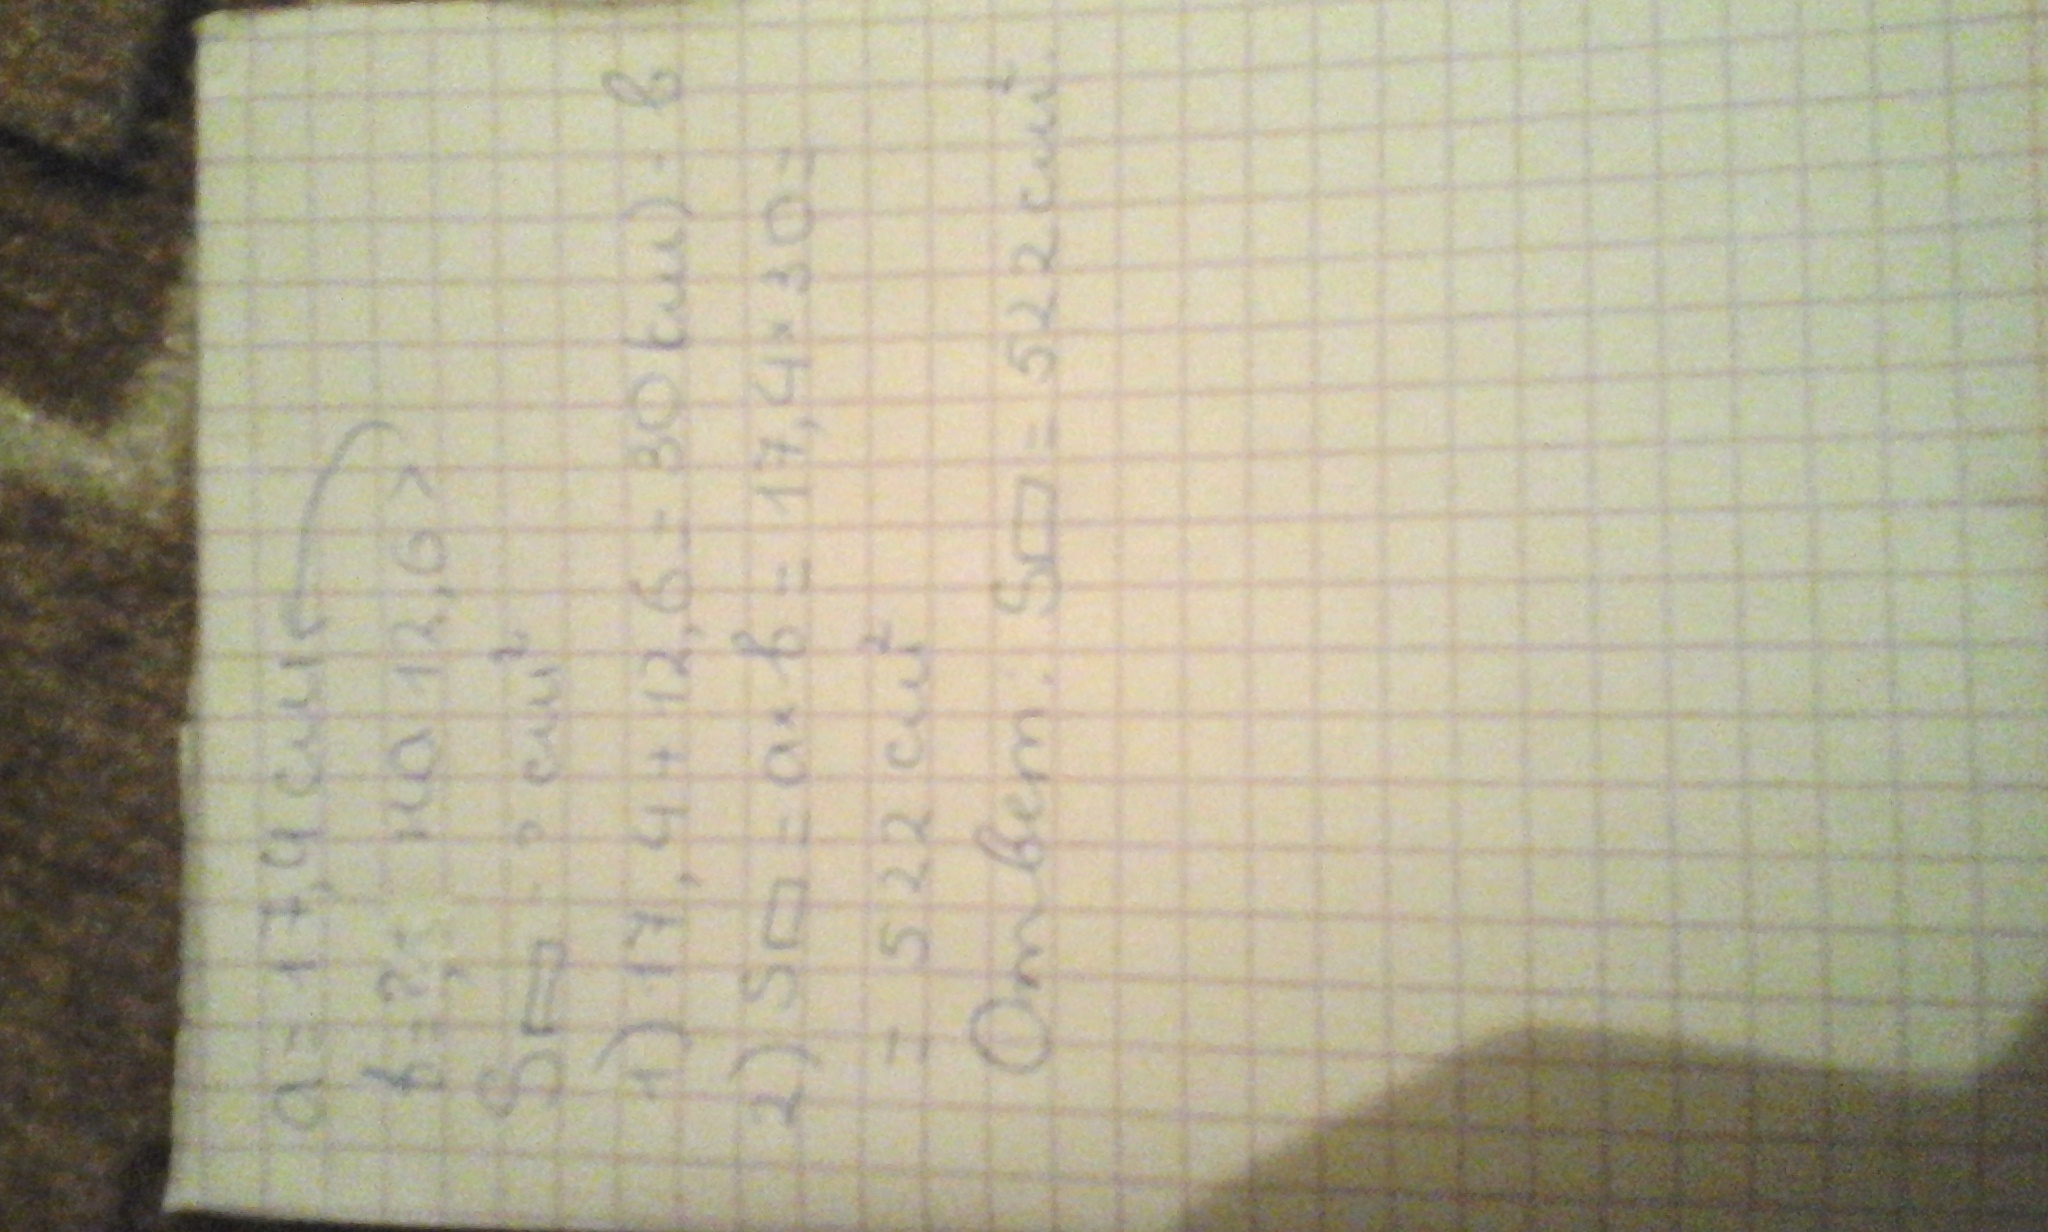 a = 17,4 см
b = ?, на 12,6 >
S▭ - ? см²
1) 17,4 + 12,6 = 30 (см) - b
2) S▭ = a × b = 17,4 × 30 =
= 522 см²
Ответ: S▭ = 522 см²